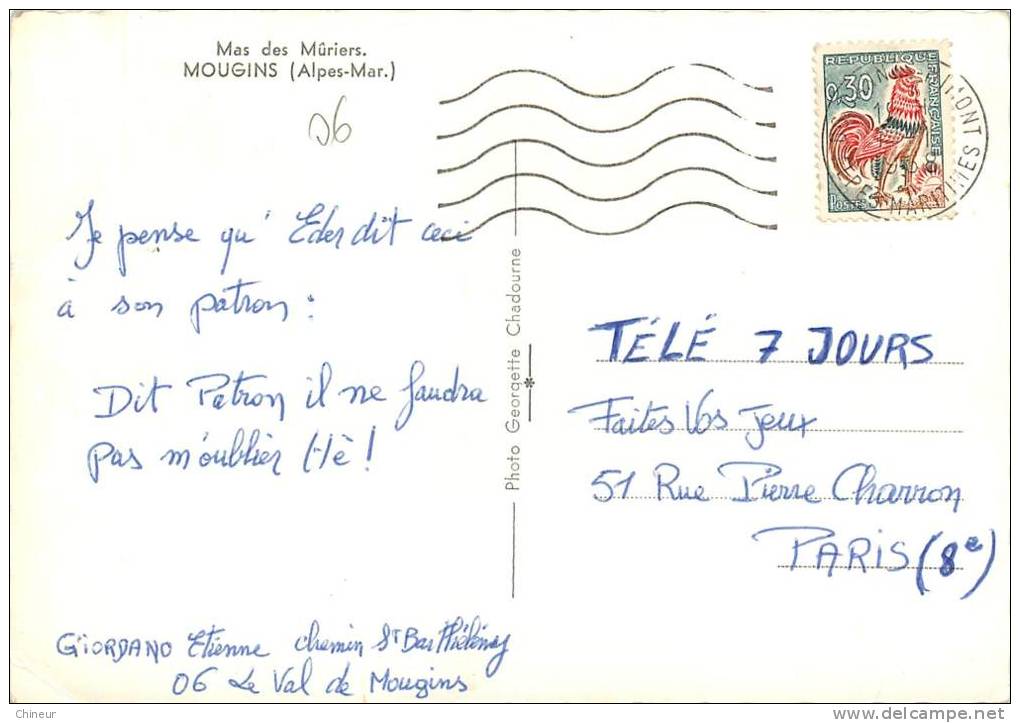 Mas des Mûriers.
MOUGINS (Alpes-Mar.)
06
Je pense qu' Eder dit ceci
à son patron :
Dit Patron il ne faudra
pas m'oublier Hè !
GIORDANO Etienne chemin St Barthélémy
06 Le Val de Mougins
Photo Georgette Chadourne
REPUBLIQUE FRANÇAISE
0,30
POSTES
ALPES MARITIMES
TÉLÉ 7 JOURS
Faites Vos Jeux
51 Rue Pierre Charron
PARIS (8e)
Chineur
delcampe.net